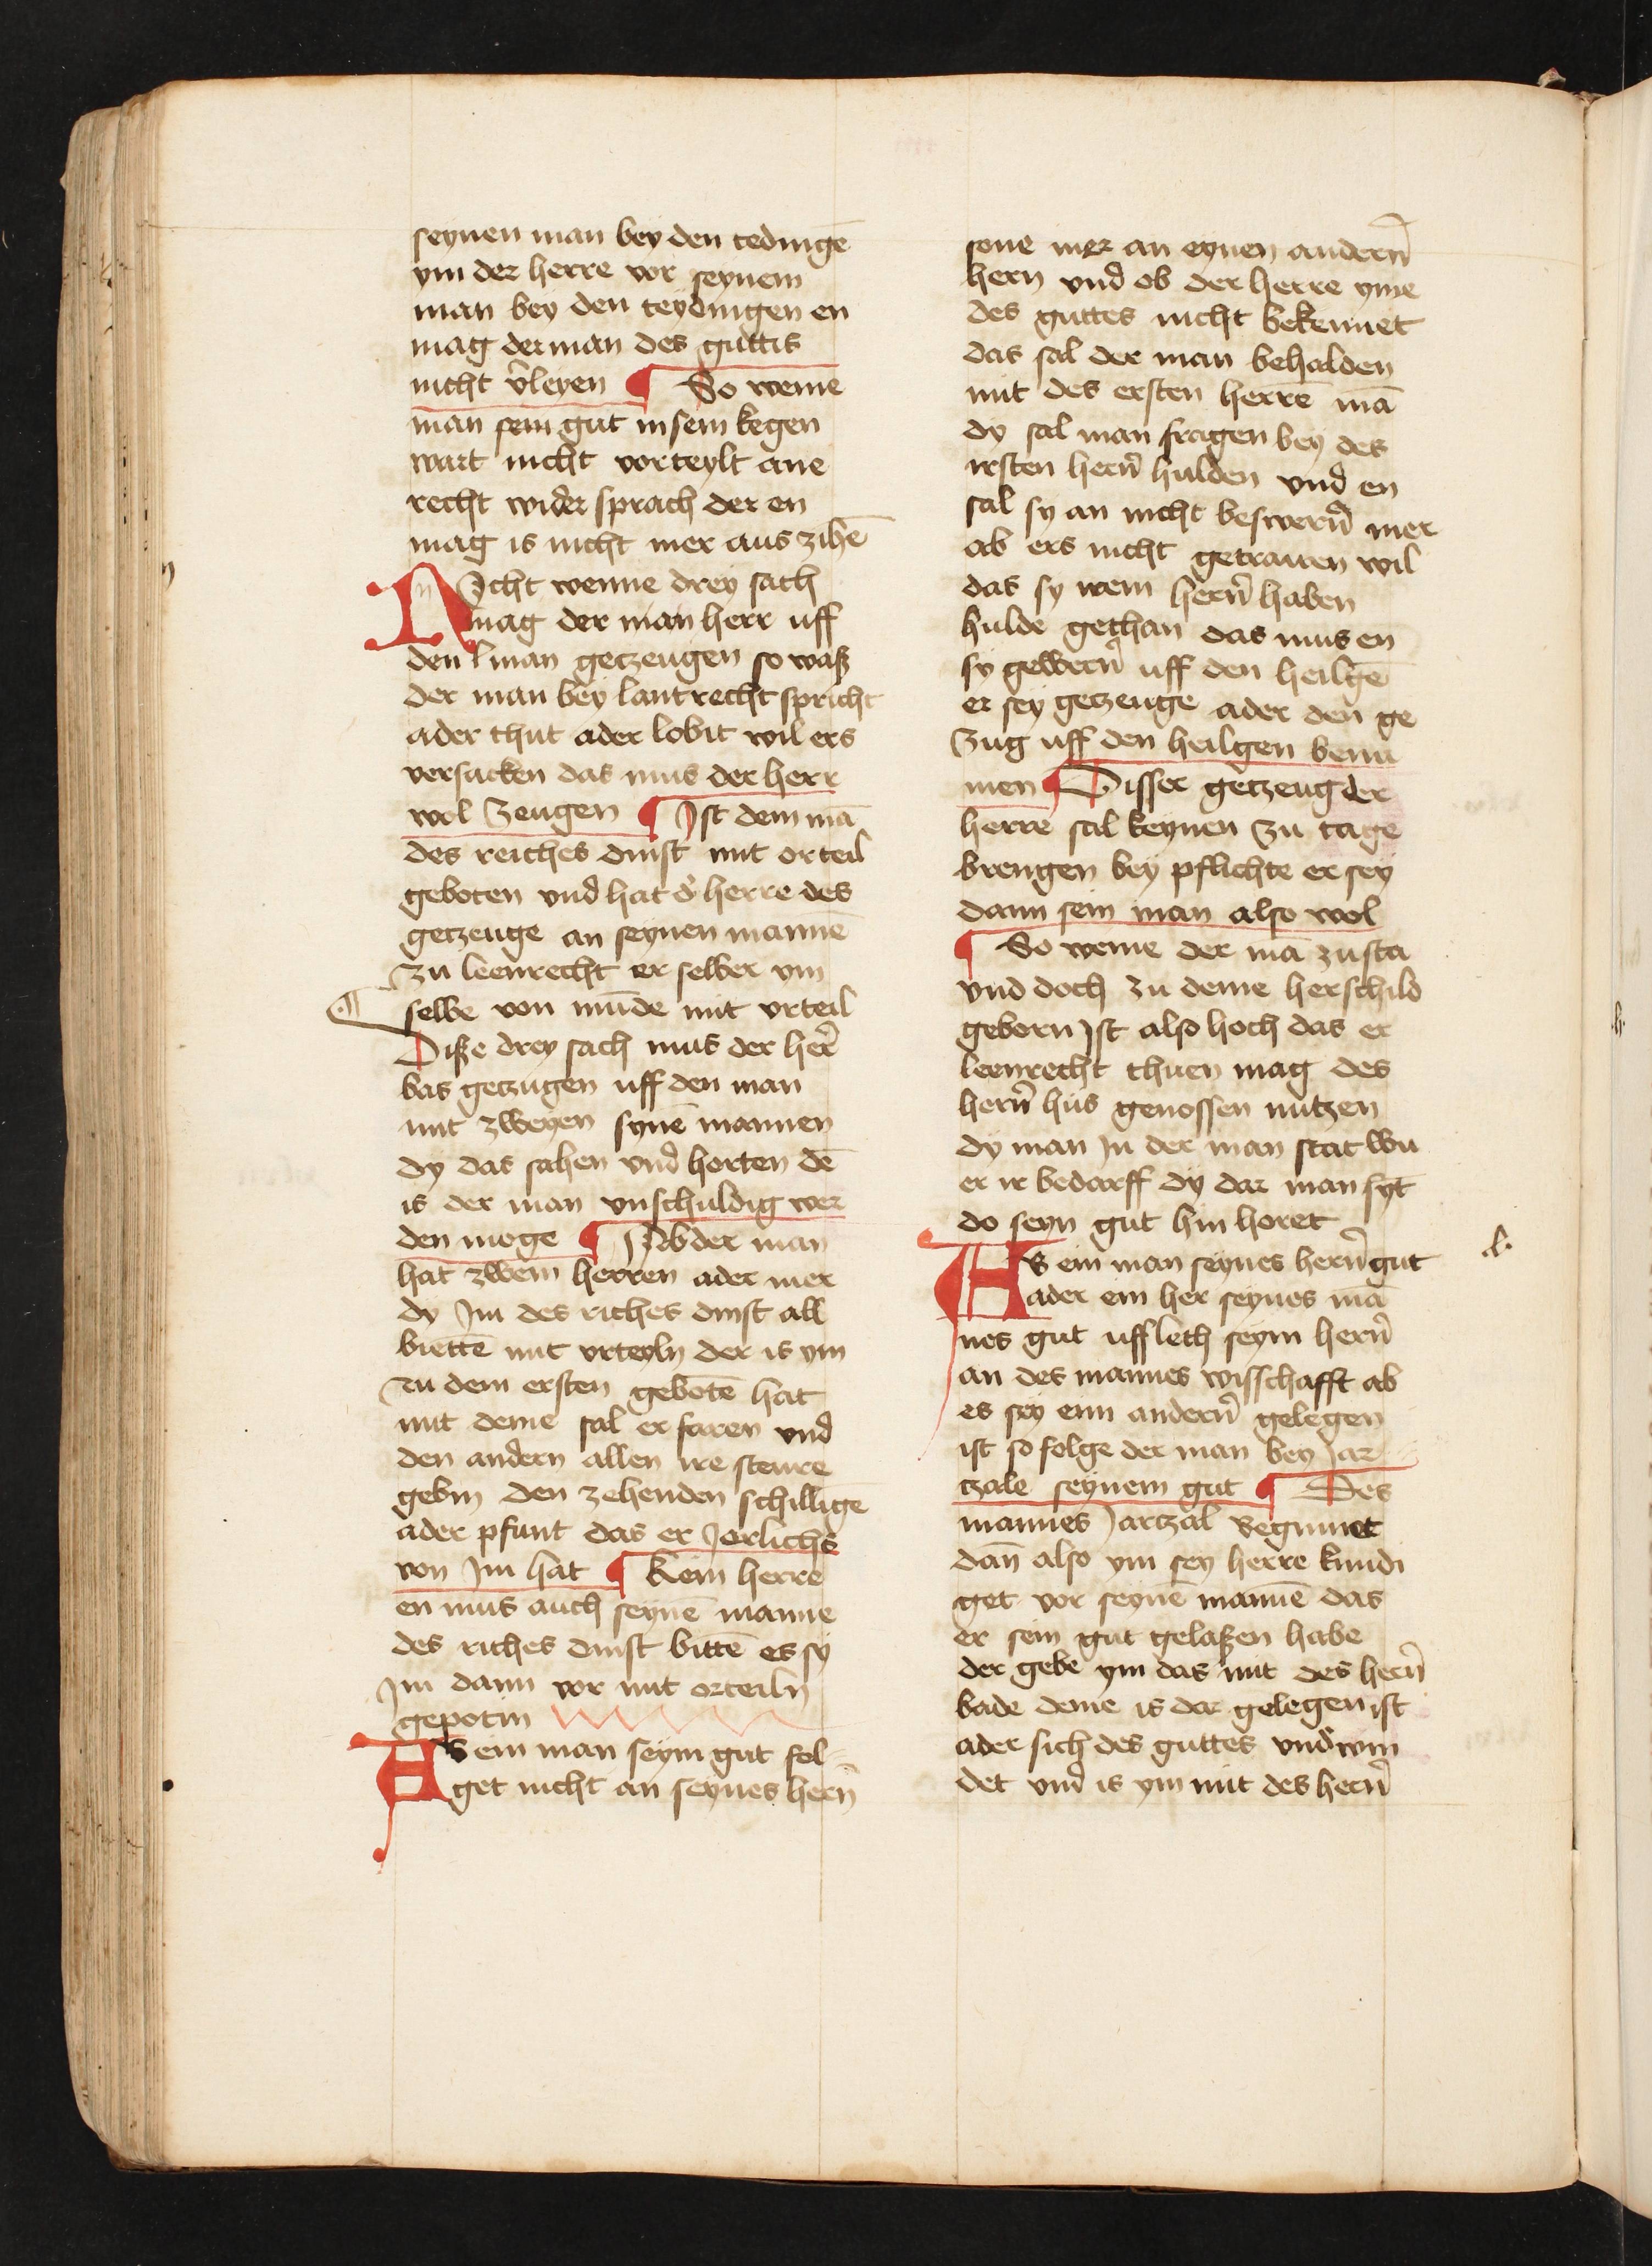 seynen man bey den tedinge̅
ym der herre vor seynem
man bey den teydingen en
mag der man des guttis
nicht v̾leyen ¶ So weme
man sein gut in sein kegen
wart nicht vorteylt ane
recht wider sprach der en
mag is nicht mer aus zihe̅
Nicht wenne drey sach
mag der man herr uff
den lman getzeugen so waß
der man bey lantrecht spricht
ader thut ader lobit wil ers
versacken das mus der herr
wol zeugen ¶ Ist dem ma̅
des reiches dinst mit orteil
geboten vnd hat d̾ herre des
getzeuge an seynen manne̅
zu leenrecht er selber ym
selbe von mu̅de mit vrteil
Diße drey sach mus der her̾
bas getzugen uff den man
mit zweyen syne̅ mannen
dy das sahen vnd horten de̅
is der man vnschuldig wer
den moge ¶ Ab der man
hat zwem herren ader mer
dy Im des riches dinst all
biette̅ mit vrteyln der is ym
zu dem ersten gebote̅ hat
mit deme sal er faren vnd
den andern allen ire steure
gebin den zehenden schillige
ader pfunt das er Jerlichs
von Im hat ¶ Kein herre
en mus auch seyne̅ manne
des riches dinst bitte̅ es sy
Im dann vor mit orteiln
gepotin
Ab ein man seym gut fol
get nicht an seynes hern̾
sone mer an eynen andern̾
hern vnd ob der herre yme
des guttes nicht bekennet
das sal der man behalden
mit des ersten herre̅ ma̅
dy sal man fragen bey des
irsten hern̾ hulden vnd en
sal sy an nicht beswern̾ mer
ab ers nicht getrauen wil
das sy irem hern̾ haben
hulde gethan das mus en
sy gewern̾ uff den heilge̅
er sey getzeuge ader den ge
zug uff den heilgen benu
men ¶ Disser getzeug der
herre sal keynen zu tage
brengen bey pflichte er sey
dann sein man also wol
¶ So weme der ma̅ zusta
vnd doch zu deme herschild
geborn Ist also hoch das er
leenrecht thuen mag des
hern̾ hus genossen nutzen
dy man In der man stat wu
er ir bedarff dy dar man syt
do seyn gut hin horet
Ab ein man seynes hern̾ gut
ader ein her seynes ma̅
nes gut uffleth seym hern̾
an des mannes wisschafft ab
es sey enn andern̾ gelegen
ist so folge der man bey Jar
tzale seynem gut ¶ Des
mannes Jartzal begunnet
dan̅ also ym sey herre kundi
get vor seyne̅ manne̅ das
er sein gut gelaßen habe
der gebe ym das mit des hern̾
bade deme is dar gelegen ist
ader sich des guttes vnd̾win
det vnd is ym mit des hern̾